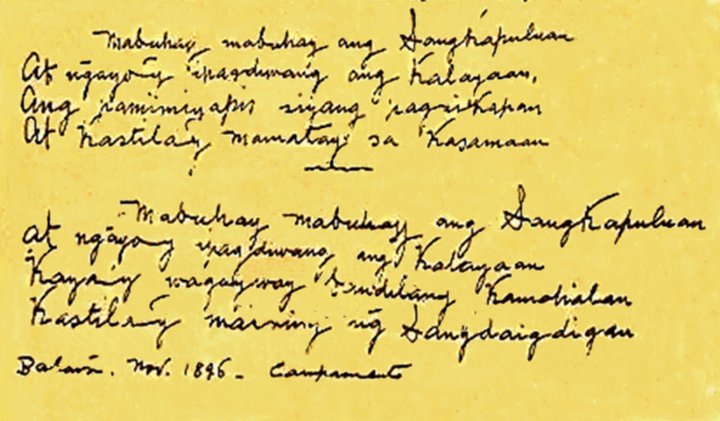 Mabuhay mabuhay ang Sangkapuluan
At ngayo'y ipagdiwang ang Kalayaan,
Ang siyang pagsikapan
At Kastila'y mamatay sa Kasamaan
Mabuhay mabuhay ang Sangkapuluan
at ngayo'y ipagdiwang ang Kalayaan
wagayway bandilang Kamahalan
Kastila'y ng Sangdaigdigan
Balara. Nov. 1896 - Campamento